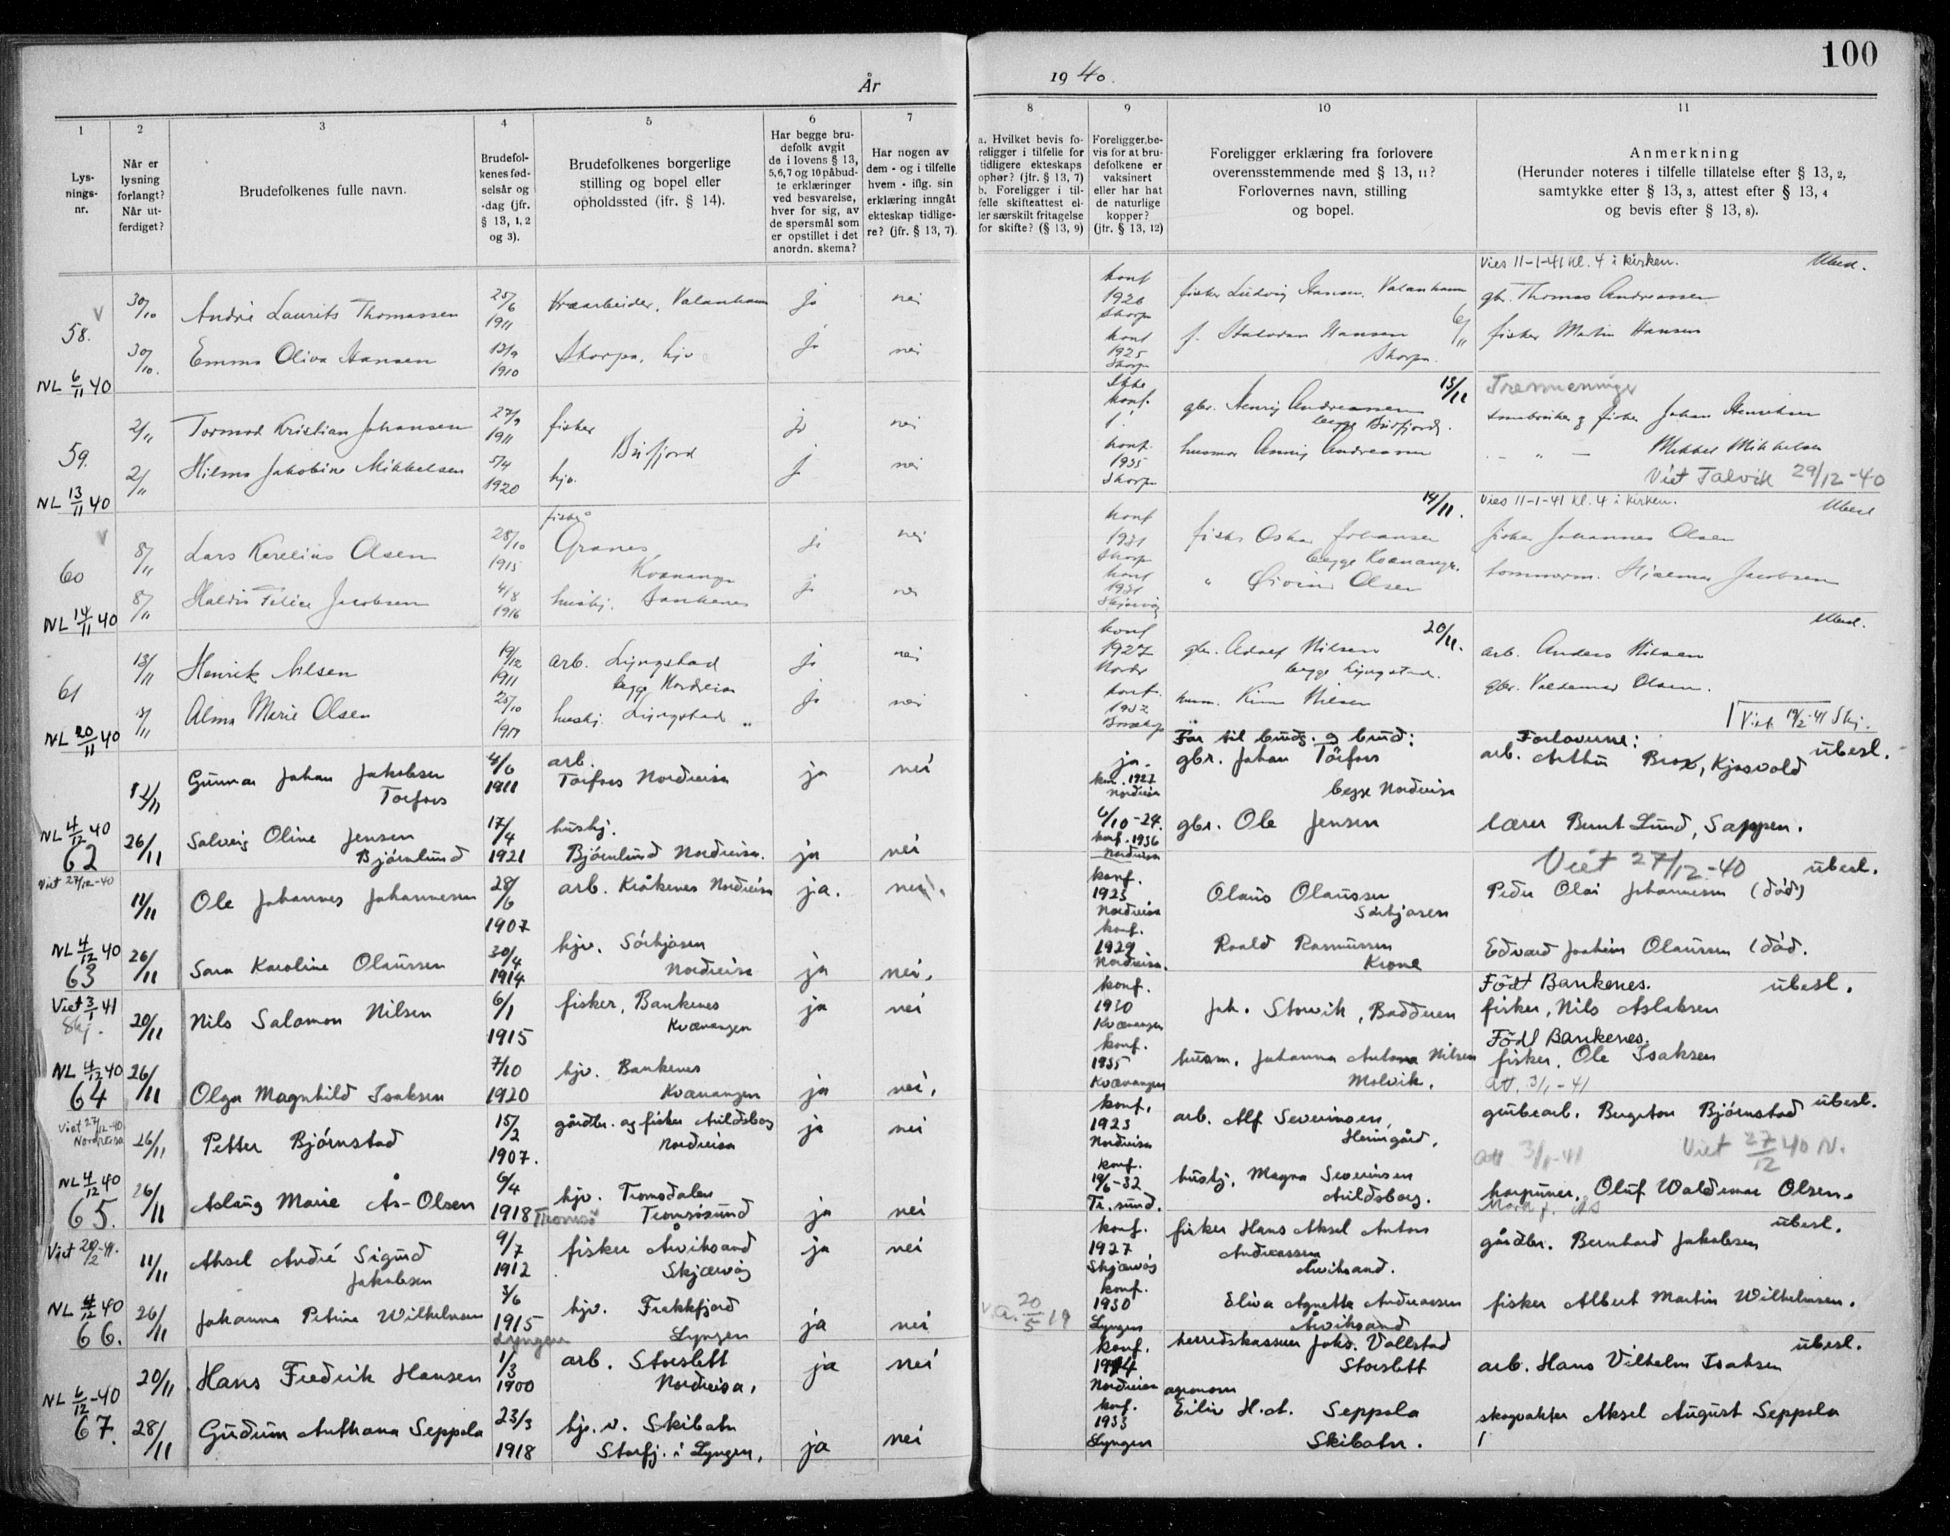 100
År
19 40.
1
2
3
4
5
6
7
8
9
10
11
Lys-
nings-
nr.
Når er
lysning
forlangt?
Når ut-
ferdiget?
Brudefolkenes fulle navn.
Brudefol-
kenes fød-
selsår og
-dag (jfr.
§ 13, 1, 2
og 3).
Brudefolkenes borgerlige
stilling og bopel eller
opholdssted (ifr. § 14).
Har begge bru-
defolk avgit
de i lovens § 13,
5,6,7 og 10 påbud-
te erklæringer
ved besvarelse,
hver for sig, av
de spørsmål som
er opstillet i det
anordn. skema?
Har nogen av
dem - og i tilfelle
hvem - iflg. sin
erklæring inngåt
ekteskap tidlige-
re? (jfr. § 13, 7).
a. Hvilket bevis fo-
religger i tilfelle for
tidligere ekteskaps
ophør? (jfr. § 13, 7)
b. Foreligger i til-
felle skifteattest el-
ler særskilt fritagelse
for skifte? (§ 13, 9)
Foreligger be-
vis for at bru-
defolkene er
vaksinert
eller har hat
de naturlige
kopper?
(jfr. § 13, 12)
Foreligger erklæring fra forlovere
overensstemmende med § 13, 11?
Forlovernes navn, stilling
og bopel.
Anmerkning
(Herunder noteres i tilfelle tillatelse efter § 13, 2,
samtykke efter § 13, 3, attest efter § 13, 4
og bevis efter § 13, 8).
Vies 11-1-41 kl. 4 i kirken. Ubesl.
58. 30/10 André Laurits Thomassen 25/6 1911 jo nei konf 1926 Skorpa gbr. Thomas Andreassen
30/10. Emma Oliva Hansen 13/9 1910 Skorpa, hjv jo nei konf 1925 Skorpa Skorpa. 6/11 fisker Martin Hansen
NL 6/11 40
Tremenninger
59. 2/11 Tormod Kristian Johansen 27/9 1911 fisker jo nei Ikke konf. gbr. Henrij Andreassen begge Burfjord. 15/11 Johan Henriksen
2/11 Hilma Jakobine Mikkelsen 5/4 1920 hjv. Burfjord jo nei konf. 1935 Skorpa husmor Andreassen Mikkel Mikkelsen
NL 13/11 40 Viet Talvik 29/12-40
Vies 11-1-41 kl. 4 i kirken. Ubesl
60 8/11 Lars Kerelius Olsen 28/10 1915 fisker Granes, Kvænangen jo nei konf 1931 Skorpa fisker Oskar Johansen begge Kvænangn. 14/11. fisker Johannes Olsen
8/11 Haldis Felice Jacobsen 4/8 1916 hushj. Bankenes jo nei konf 1931 Skjervøy " Øivind Olsen Hjalmar Jacobsen
NL 14/11 40 Ubesl.
61 13/11 Henrik Nilsen 19/12 1911 arb. Lyngstad begge Nordreisa jo nei konf 1927 Nordr gbr. Adolf Nilsen begge Lyngstad. 20/11. arb. Anders Nilsen
13/11 Alma Marie Olsen 25/10 hushj. Lyngstad " jo nei konf. gbr. Valdemar Olsen.
NL 20/11 40 Viet 19/2-41 Skj.
Far til brudg. og brud: Forloverne: ubesl.
Gunnar Johan Jakobsen Torfors 4/6 1911 arb. Torfors Nordreisa ja nei ja. kon. 1927 Nordreisa gbr. Johan Torfors begge Nordreisa arb. Arthur Brox, Kjosvold
NL 4/12 40
62 26/11 Solveig Oline Jensen Bjørnlund 17/4 1921 hushj. Bjørnlund Nordreisa. ja nei 6/10-24. konf. 1936 Nordreisa gbr. Ole Jensen lærer Bernt Lund, Sappen.
Viet 27/12-40 Viet 27/12-40 ubesl.
11/11 Ole Johannes Johannesen 28/6 1907 arb. Kråkenes Nordreisa ja. nei. konf. 1923 Nordreisa Olaus Olaussen Sørkjosen Peder Olai Johannesen (død)
NL 4/12 40
63 26/11 Sara Karoline Olaussen 30/4 1914 hjv. Sørkjosen Nordreisa ja nei. konf. 1929 Nordreisa. Roald Rasmussen Edvard Joakim Olaussen (død.
Viet 3/1 41 Skj. Født Bankenes. ubesl.
20/11 Nils Salamon Nilsen 6/1 1915 fisker, Bankenes Kvænangen ja nei konf. 1930 Kvænangen Joh. Storvik, Badderen fisker, Nils Aslaksen
Født Bankenes.
NL 4/12 40
64 26/11 Olga Magnhild Isaksen 7/10 1920 hjv. Bankenes Kvænangen ja nei. konf. 1935 Kvænangen husm. Johanna Antona Nilsen Molvik. fisker, Ole Isaksen
att. 3/1-41
Viet 27/12-40 Nordreisa ubesl.
26/11 Petter Bjørnstad 15/2 1907. gårdbr. og fisker Avildsborg Nordreisa ja nei konf. 1923 Nordreisa arb. Alf Severinsen, Heimgård. grubearb. Bergeton Bjørnstad
att 3/1-41 Viet 27/12 40 N.
NL 4/12 40
65. 26/11 Aslaug Marie Ås-Olsen 6/4 1918 Tromsø hjv. Tromsdalen Tromsøsund ja nei konf. 19/6-32 Tr.sund. hushj. Magna Severinsen Avildsborg. harpuner, Oluf Waldemar Olsen.
Viet 20/2-41. ubesl.
11/11 Aksel André Sigurd Jakobsen 9/7 1912 fisker Årviksand Skjærvøy ja nei konf. 1927 Skjærvøy fisker Hans Aksel Anton Andreassen Arviksand. gårdbr. Bernhard Jakobsen
NL 4/12 40
66. 26/11 Johanna Petrine Wilhelmsen 3/6 1915 Lyngen hjv. Frakkfjord Lyngen ja nei v.a. 20/5 19 konf. 1930 Lyngen Eliva Agnetha Andreassen Arviksand fisker Albert Martin Wilhelmsen.
ubesl.
20/11 Hans Fredrik Hansen 1/3 1900 arb. Storslett Nordreisa, ja nei konf. 1914 Nordreisa herredskasserer Joks. Vollstad Storslett arb. Hans Vilhelm Isaksen
NL 6/12-40
67. 28/11 Gudrun Anthana Seppola 23/3 1918 hj.v. Skibotn Storfj. i Lyngen, ja nei konf. 1933 Lyngen agronom Eiliv H.A. Seppola Skibotn. skogvokter Aksel August Seppola